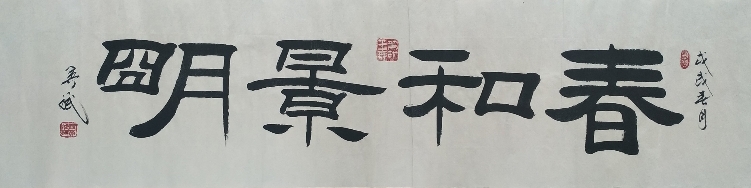 戊戌春月
春和景明
吴斌